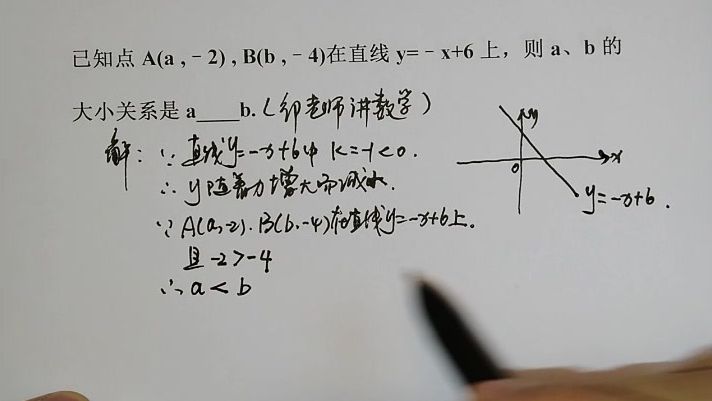 已知点 A(a ,－2) , B(b ,－4)在直线 y=－x+6 上，则 a、b 的
大小关系是 a____b.（邹老师讲数学）
解：∵ 直线y=-x+6中 k=-1<0.
∴ y随着x增大而减小.
∵ A(a,-2).B(b,-4)在直线y=-x+6上.
且 -2>-4
∴ a < b
y
x
0
y=-x+6.